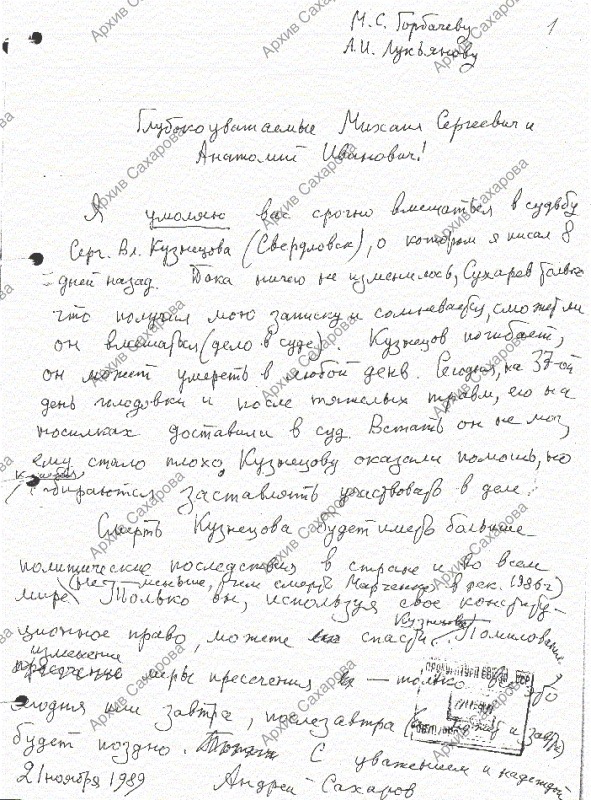 М.С. Горбачеву
1
А.И. Лукьянову
Глубокоуважаемые Михаил Сергеевич и
Анатолий Иванович!
Я умоляю вас срочно вмешаться в судьбу
Серг. Вл. Кузнецова (Свердловск), о котором я писал 8
дней назад. Пока ничего не изменилось, Сухарев только
что получил мою записку и сомневается, сможет ли
он вмешаться (дело в суде). Кузнецов погибает,
он может умереть в любой день. Сегодня, на 37-ой
день голодовки и после тяжелых травм, его на
носилках доставили в суд. Встать он не мог,
ему стало плохо, Кузнецову оказали помощь, но
собираются заставлять участвовать в деле.
Смерть Кузнецова будет иметь большие
политические последствия в стране и во всем
(не меньше, чем смерть Марченко в дек. 1986 г)
мире. Только вы, используя свое конститу-
ционное право, можете спасти Кузнецова. Помилование,
изменение
меры пресечения — только
сегодня или завтра, послезавтра
будет поздно. С уважением и надеждой
21 ноября 1989 Андрей Сахаров
Архив Сахарова